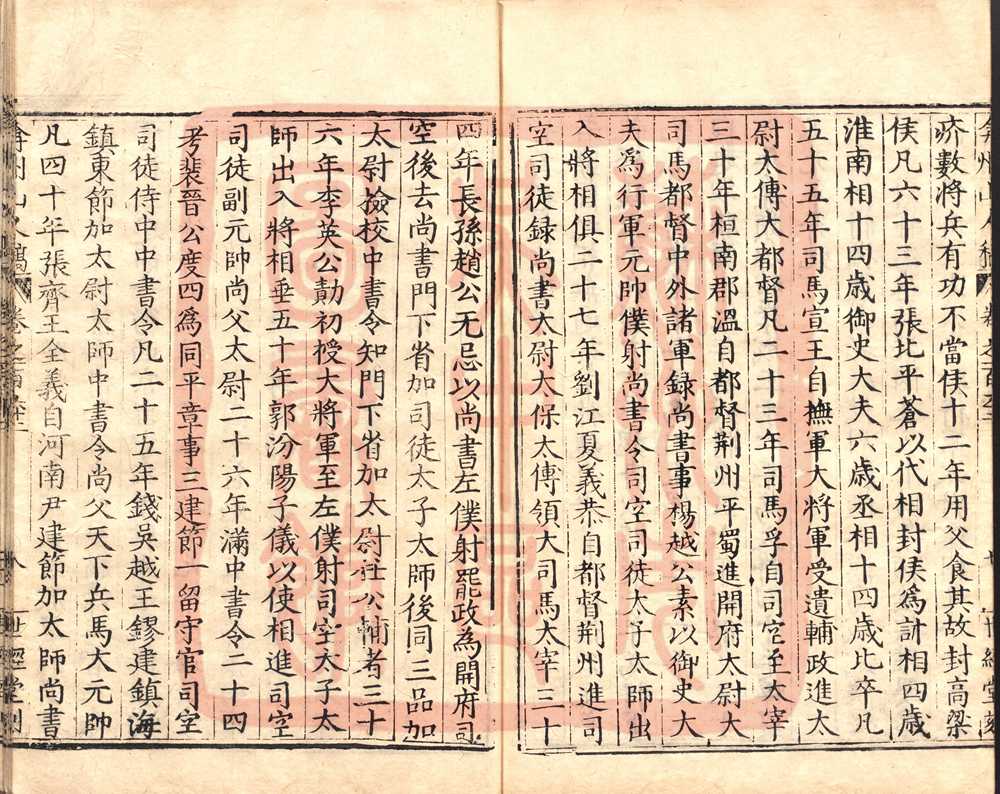 疥數將兵有功不當侯十二年用父食其故封高梁
侯凡六十三年張北平蒼以代相封侯爲計相四歲
淮南相十四歲御史大夫六歲丞相十四歲比卒凡
五十五年司馬宣王自撫軍大將軍受遺輔政進太
尉太傅大都督凡二十三年司馬孚自司空至太宰
三十年桓南郡溫自都督荆州平蜀進開府大尉大
司馬都督中外諸軍録尚書事楊越公素以御史大
夫爲行軍元帥僕射尚書令司空司徒太子太師出
入將相俱二十七年劉江夏義恭自都督荆州進司
空司徒録尚書太尉太保太傅領大司馬太宰三十
四年長孫趙公无忌以尚書左僕射罷政為開府司
空後去尚書門下省加司徒太子太師後同三品加
太尉撿校中書令知門下省加太尉社公輔者三十
六年李英公勣初授大將軍至左僕射司空太子太
師出入將相垂五十年郭汾陽子儀以使相進司空
司徒副元帥尚父太尉二十六年滿中書令二十四
考裴晉公度四爲同平章事三建節一留守官司空
司徒侍中中書令凡二十五年錢吳越王鏐建鎮海
鎮東節加太尉太師中書令尚父天下兵馬大元帥
凡四十年張齊王全義自河南尹建節加太師尚書